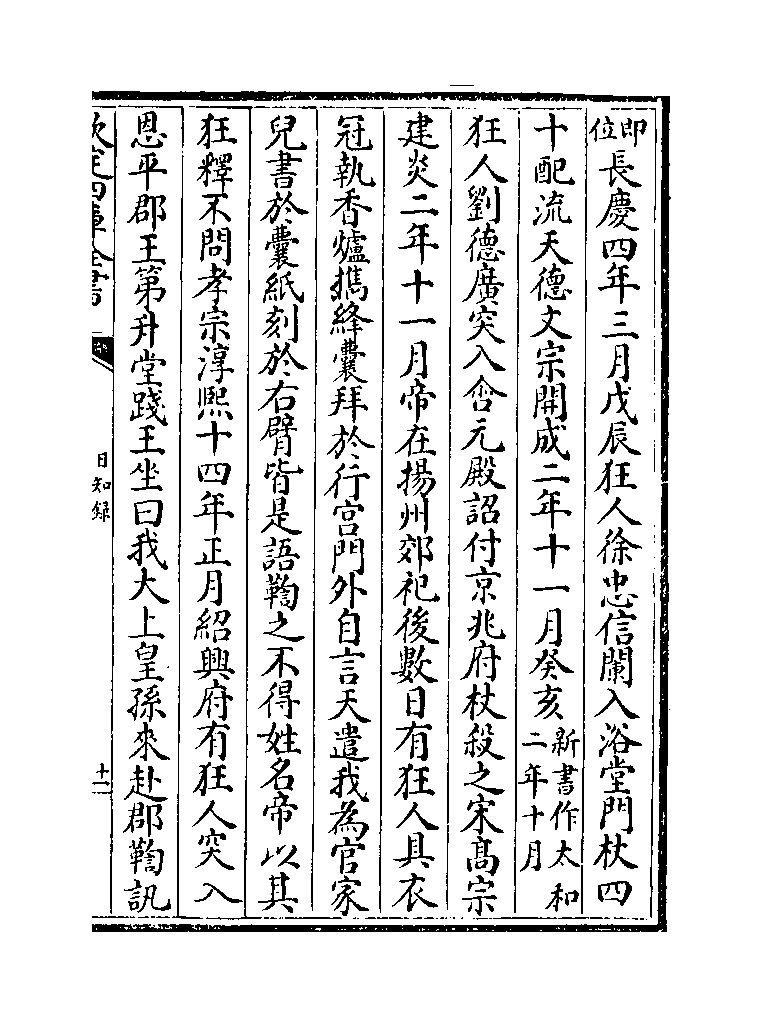 即位長慶四年三月戊辰狂人徐忠信闌入浴堂門杖四
十配流天德文宗開成二年十一月癸亥新書作太和二年十月
狂人劉德廣突入含元殿詔付京兆府杖殺之宋髙宗
建炎二年十一月帝在揚州郊祀後數日有狂人具衣
冠執香爐擕絳囊拜於行宫門外自言天遣我為官家
兒書於囊紙刻於右臂皆是語鞫之不得姓名帝以其
狂釋不問孝宗淳熙十四年正月紹興府有狂人突入
恩平郡王第升堂踐王坐曰我大上皇孫來赴郡鞫訊
欽定四庫全書
日知録
十一